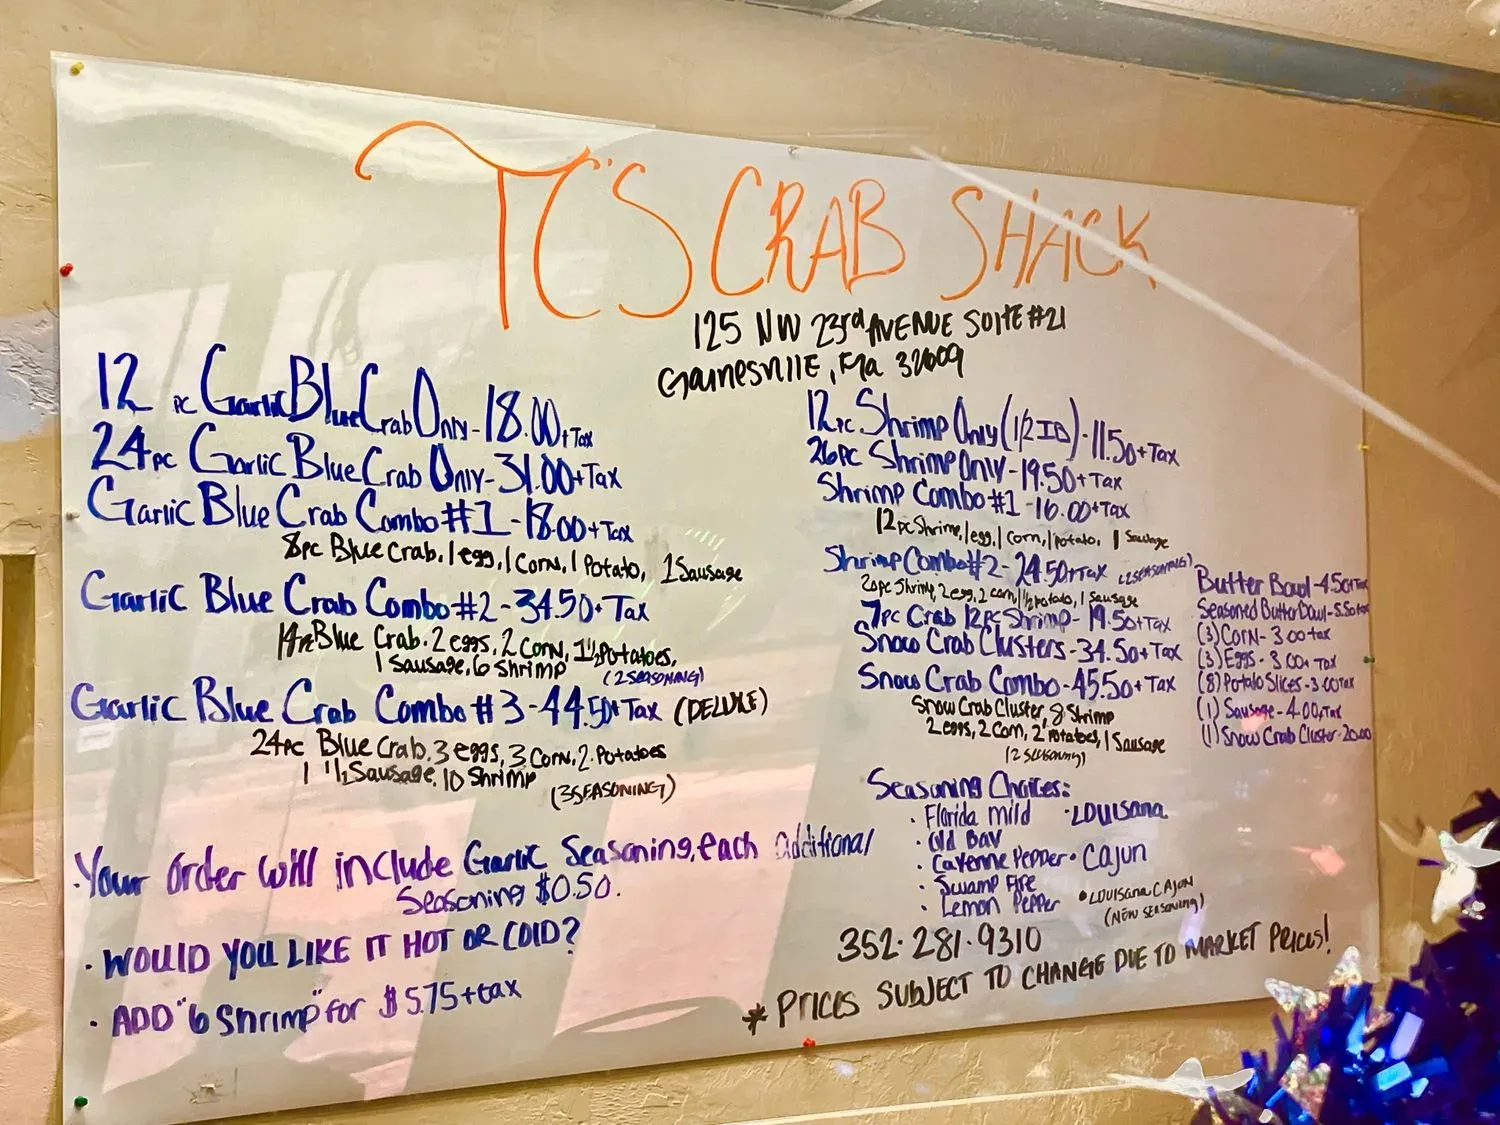 TC'S CRAB SHACK
125 NW 23rd AVENUE SUITE #21
Gainesville, Fla 32609
12 pc Garlic Blue Crab Only - 18.00 + Tax
24 pc Garlic Blue Crab Only - 31.00 + Tax
Garlic Blue Crab Combo #1 - 18.00 + Tax
8pc Blue Crab, 1 egg, 1 Corn, 1 Potato, 1 Sausage
Garlic Blue Crab Combo #2 - 34.50 + Tax
14pc Blue Crab. 2 eggs, 2 Corn, 1 1/2 Potatoes,
1 Sausage, 6 Shrimp (2 SEASONING)
Garlic Blue Crab Combo #3 - 44.50 + Tax (DELUXE)
24pc Blue Crab. 3 eggs, 3 Corn, 2 Potatoes
1 1/2 Sausage, 10 Shrimp (3 SEASONING)
· Your order will include Garlic Seasoning, each additional
Seasoning $0.50.
· WOULD YOU LIKE IT HOT OR COLD?
· ADD "6 Shrimp" for $5.75 + tax
12pc Shrimp Only (1/2 lb) - 11.50 + Tax
26pc Shrimp Only - 19.50 + Tax
Shrimp Combo #1 - 16.00 + Tax
12pc Shrimp, 1 egg, 1 corn, 1 potato, 1 Sausage
Shrimp Combo #2 - 24.50 + Tax (2 SEASONING)
20pc Shrimp, 2 egg, 2 corn, 1 1/2 potato, 1 Sausage
7pc Crab 12pc Shrimp - 19.50 + Tax
Snow Crab Clusters - 34.50 + Tax
Snow Crab Combo - 45.50 + Tax
Snow Crab Cluster, 8 Shrimp
2 eggs, 2 Corn, 2 Potatoes, 1 Sausage
(2 SEASONING)
Butter Bowl - 4.50 + Tax
Seasoned Butter Bowl - 5.50 + tax
(3) Corn - 3.00 + tax
(3) Eggs - 3.00 + Tax
(8) Potato Slices - 3.00 Tax
(1) Sausage - 4.00 + Tax
(1) Snow Crab Cluster - 20.00
Seasoning Choices:
· Florida Mild · LOUISIANA
· Old Bay
· Cayenne Pepper · Cajun
· Swamp Fire
· Lemon Pepper · LOUISIANA CAJUN
(NEW SEASONING)
352·281·9310
* PRICES SUBJECT TO CHANGE DUE TO MARKET PRICES!